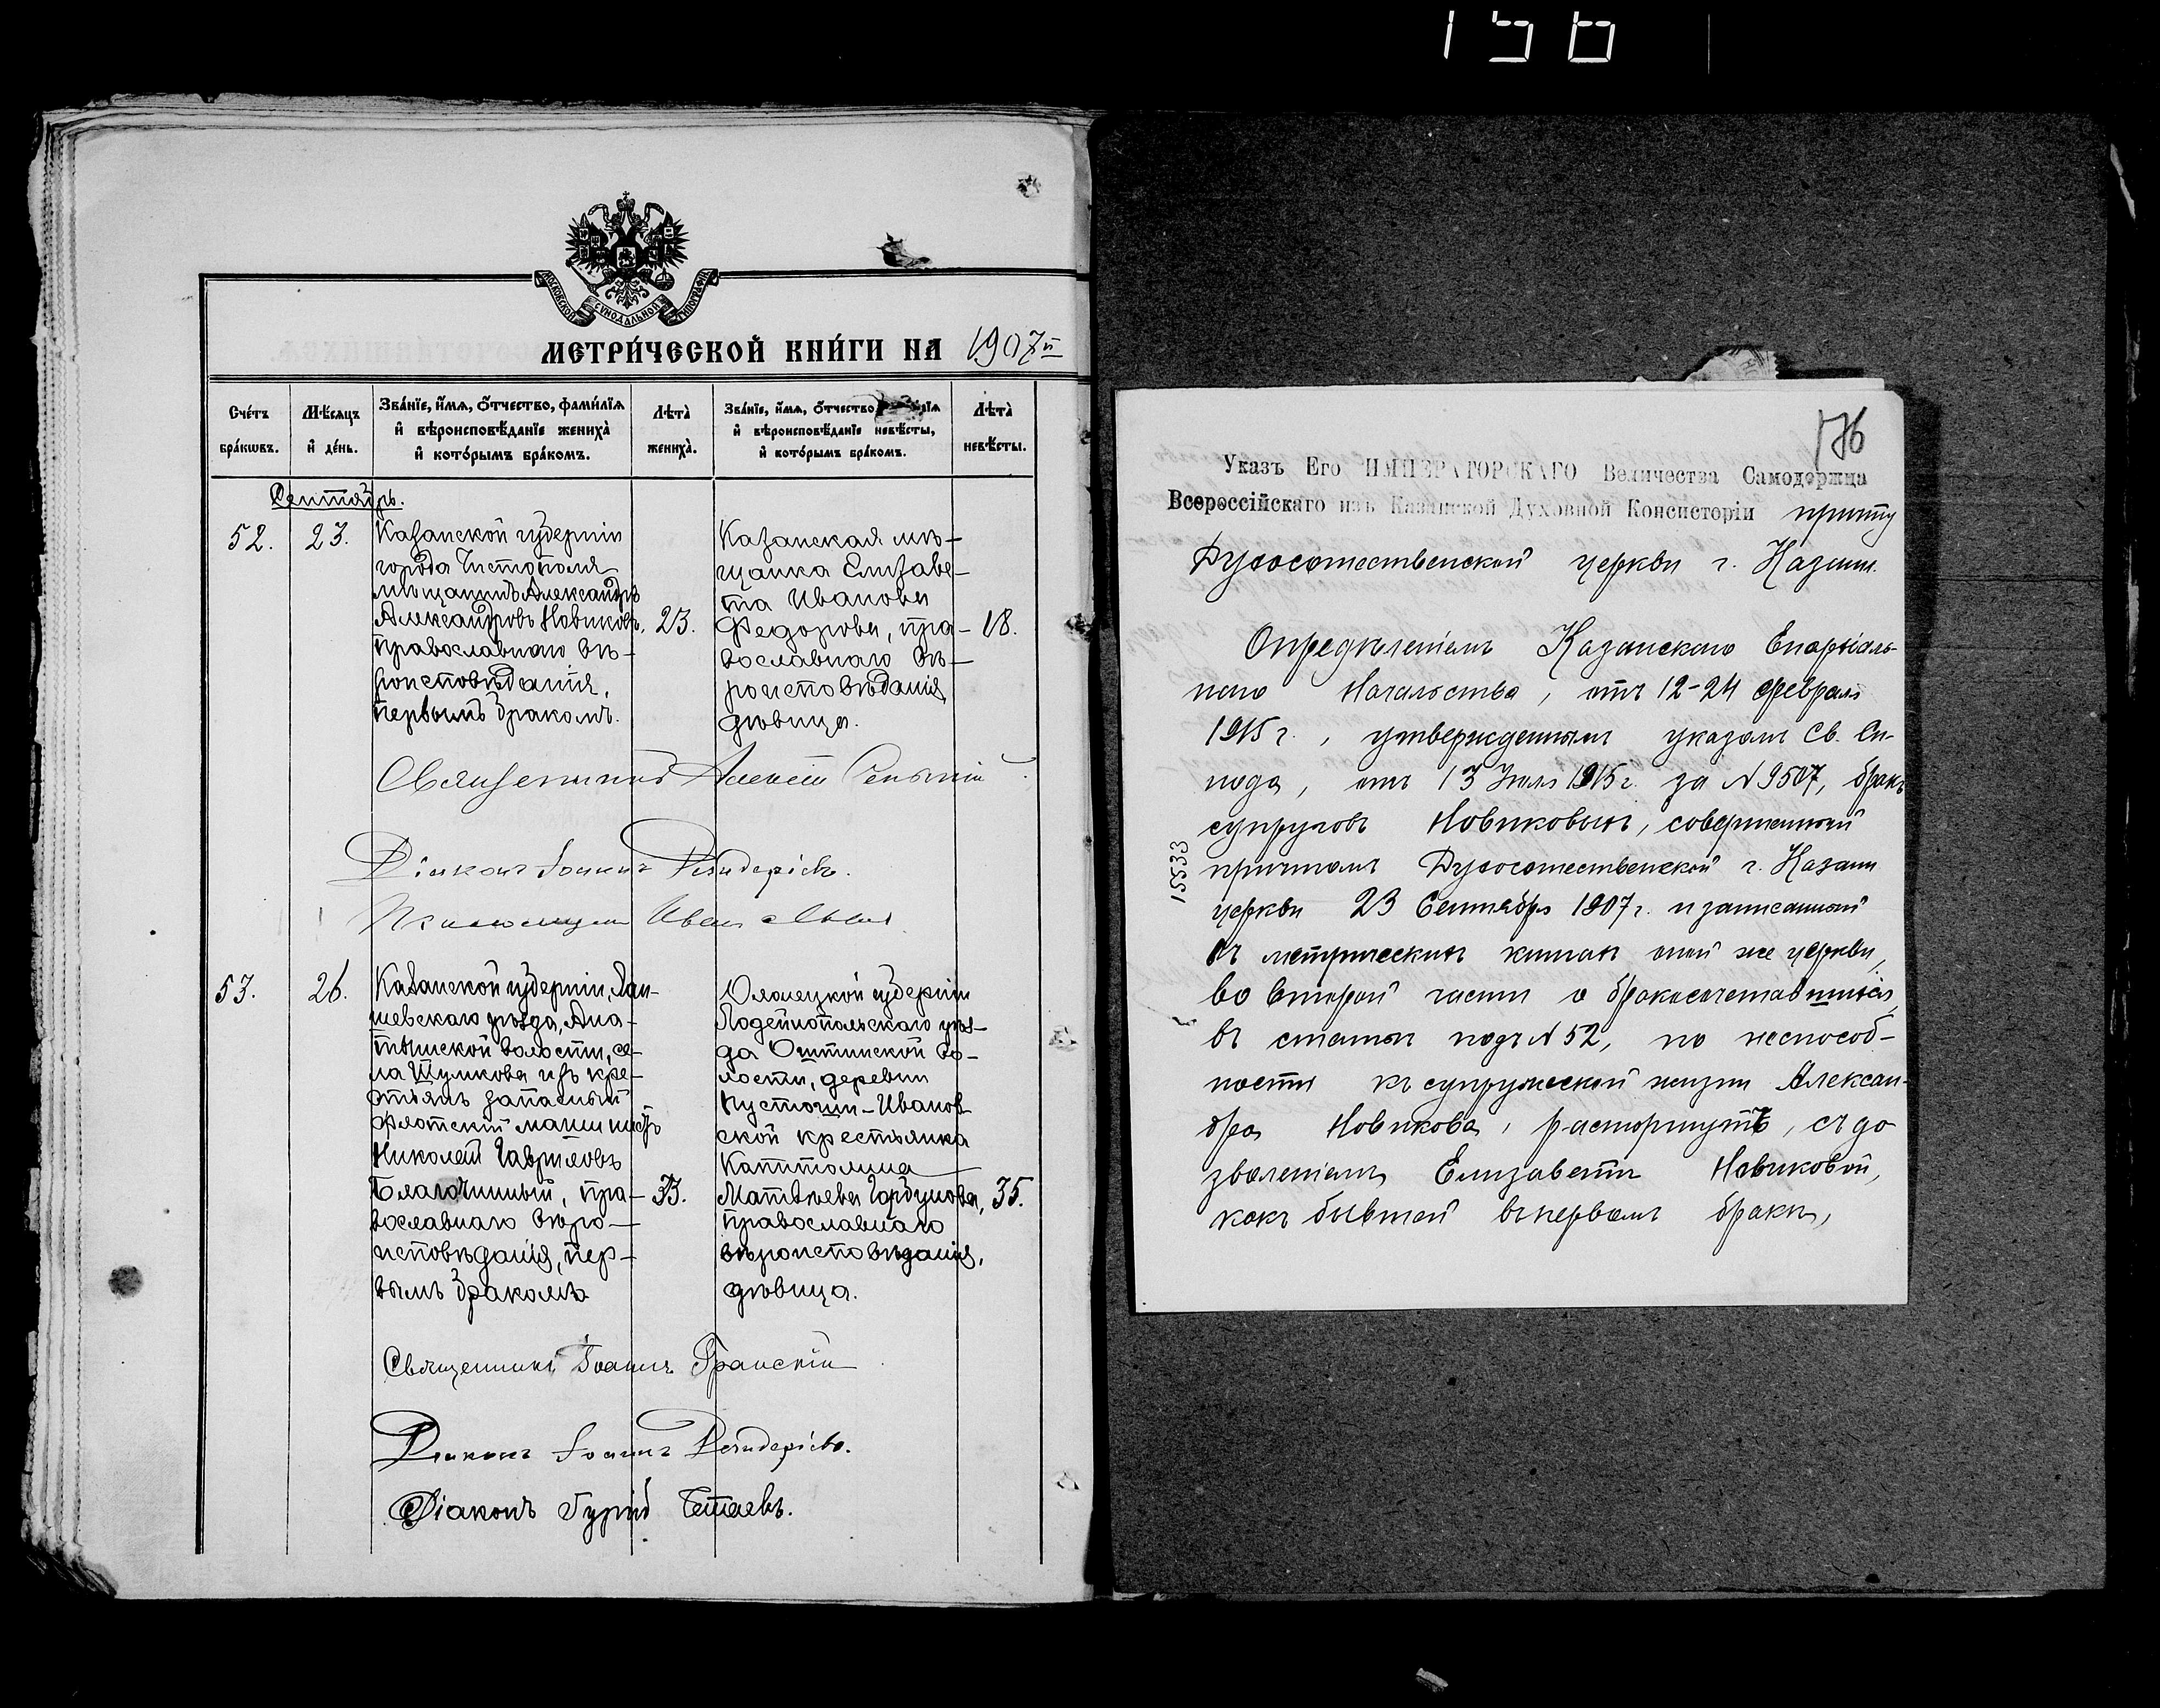 156
МОСКОВСКОЙ СѴНОДАЛЬНОЙ ТИПОГРАФІИ
МЕТРИ́ЧЕСКОЙ КНИ́ГИ НА 1907й
Сче́тъ бра́кωвъ.
Мѣ́сяцъ и҆ де́нь.
Зва́нїе, и҆́мѧ, ѻ҆́тчество, фами́лїѧ
и҆ вѣроисповѣ́данїе жениха̀
и҆ кото́рымъ бра́комъ.
Лѣта̀ жениха̀.
Зва́нїе, и҆́мѧ, ѻ҆́тчество
и҆ вѣроисповѣ́данїе невѣ́сты,
и҆ кото́рымъ бра́комъ.
Лѣта̀ невѣ́сты.
Сентябрь.
52.
23.
Казанской губерніи
города Чистополя
мѣщанинъ Александръ
Александровъ Новиковъ,
православнаго вѣ-
роисповѣданія,
первымъ бракомъ.
23.
Казанская мѣ-
щанка Елизаве-
та Иванова
Федорова, пра-
вославнаго вѣ-
роисповѣданія
дѣвица.
18.
Священникъ Алексій
Діаконъ Іоаннъ
Псаломщикъ Иванъ
53.
26.
Казанской губерніи, Лаи-
шевскаго уѣзда, Ана-
тышской волости, се-
ла Шумкова изъ кре-
стьянъ запасный
флотскій машинистъ
Николай Гавриловъ
Благочинный, пра-
вославнаго вѣро-
исповѣданія, пер-
вымъ бракомъ
33.
Олонецкой губерніи
Лодейнопольскаго уѣз-
да Оштинской во-
лости, деревни
Пустоши-Иванов-
ской крестьянка
Капитолина
Матвѣева Горбунова,
православнаго
вѣроисповѣданія,
дѣвица.
35.
Священникъ Іоаннъ Гранскій
Діаконъ Іоаннъ
Діаконъ Гурій
176
Указъ Его ИМПЕРАТОРСКАГО Величества Самодержца
Всероссійскаго изъ Казанской Духовной Консисторіи причту
Духосошественской церкви г. Казани.
Опредѣленіемъ Казанскаго Епархіаль-
наго Начальства, отъ 12-24 февраля
1915 г., утвержденнымъ указомъ Св. Си-
нода, отъ 13 Іюля 1915 г. за № 9507, бракъ
супруговъ Новиковыхъ, совершенный
причтомъ Духосошественской г. Казани
церкви 23 Сентября 1907 г. и записанный
въ метрическихъ книгахъ оной же церкви,
во второй части о бракосочетавшихся,
въ статьѣ подъ № 52, по неспособ-
ности къ супружеской жизни Алексан-
дра Новикова, расторгнутъ, съ до
зволеніемъ Елизаветѣ Новиковой,
какъ бывшей въ первомъ бракѣ,
15533